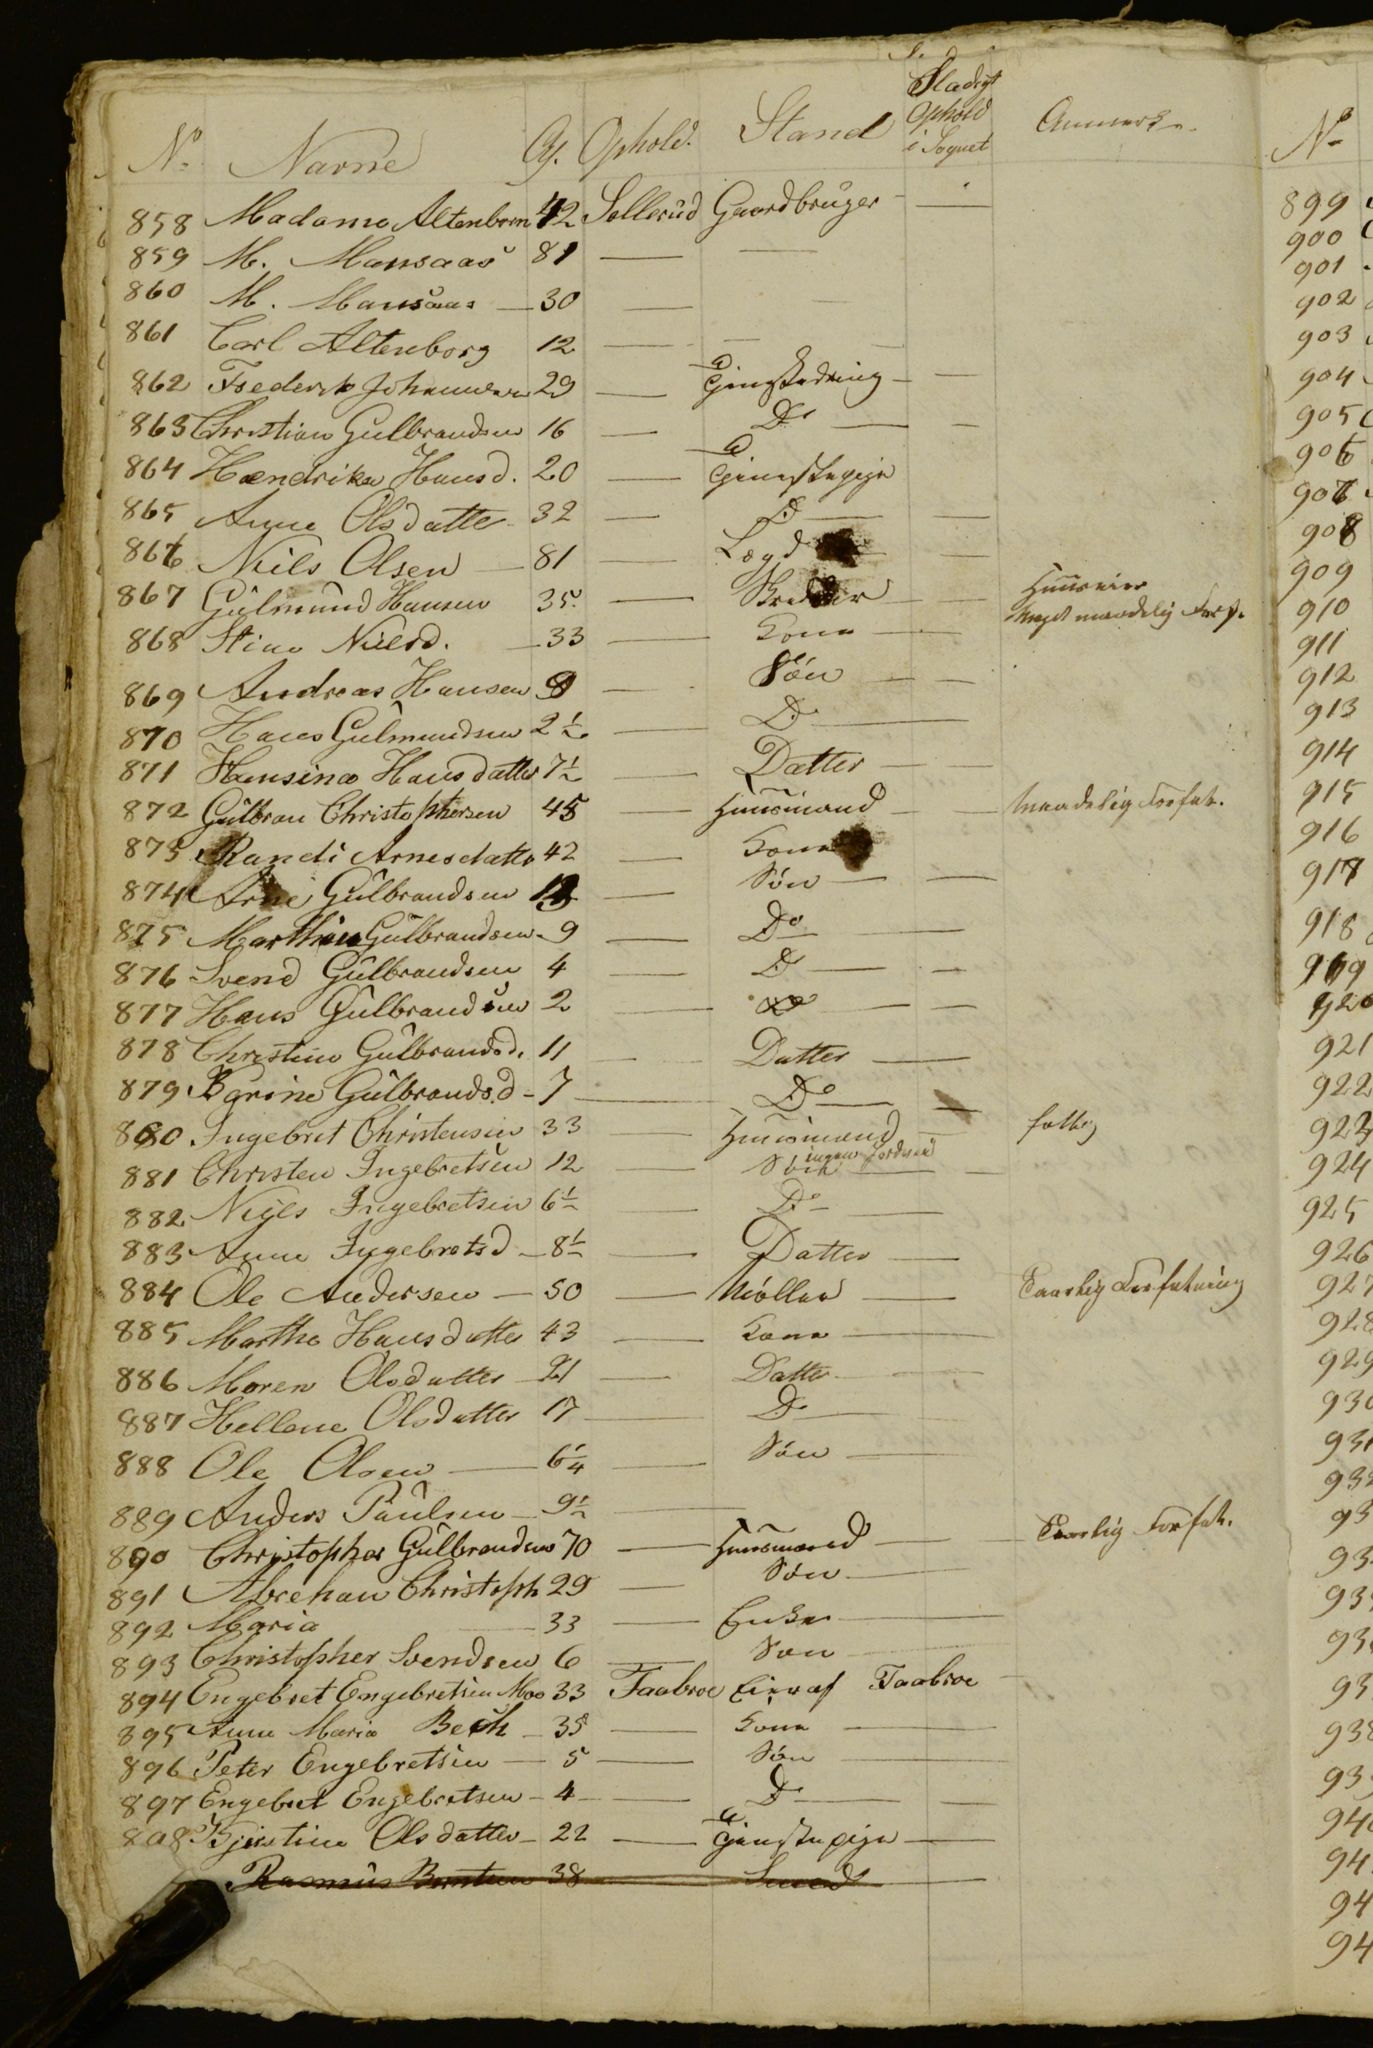 No. Navne Al. Ophold. Stand Stadigt Ophold i Sognet Anmerk.
858 Madame Altenborn 42 Sollerud Gaardbruger —
859 M. Mansaas 81 — —
860 M. Mansaas — 30 —
861 Carl Altenborg 12 — — —
862 Frederik Johannesen 29 — Tjenestedreng — —
863 Christian Gulbrandsen 16 — Do — —
864 Hændrika Hansd. 20 — Tjenestepige
865 Anne Olsdatter 32 — D. — —
866 Niels Olsen — 81 — Lægd —
867 Gulmund Hansen 35. — Skredder — Huuseier
meget maadelig Forf.
868 Stine Nielsd. — 33 — Kone —
869 Andreas Hansen 9 — Søn — —
870 Hans Gulmundsen 2½ — Do —
871 Hansine Hansdatter 7½ — Datter —
872 Gulbran Christophersen 45 — Huusmand — Maadelig Forfat.
873 Randi Arnesdatter 42 — Kone
874 Arne Gulbrandsen 13 — Søn — —
875 Marthin Gulbrandsen 9 — Do —
876 Svend Gulbrandsen 4 — Do — —
877 Hans Gulbrandsen 2 — Do — —
878 Christine Gulbrandsd. 11 — Datter —
879 Karine Gulbrands.d — 7 — Do — —
880 Ingebret Christensen 33 — Huusmand — fattig
ingen Jordvei
881 Christen Ingebretsen 12 — Søn —
882 Niels Ingebretsen 6½ — Do —
883 Anne Ingebretsd — 8½ — Datter —
884 Ole Andersen — 50 — Møller — Taarlig Forfatning
885 Marthe Hansdatter 43 — Kone —
886 Maren Olsdatter — 21 — Datter — —
887 Hellene Olsdatter 17 — Do —
888 Ole Olsen — 6¼ — Søn —
889 Anders Paulsen — 9½ —
890 Christopher Gulbrandsen 70 — Huusmand — Taarlig Forfat.
891 Abreham Christoph 29 — Søn —
892 Maria — 33 — Enke —
893 Christopher Svendsen 6 — Søn —
894 Engebret Engebretsen Moe 33 Taabroe Eier af Taabroe
895 Anne Maria Bech — 35 — Kone —
896 Peter Engebretsen — 5 — Søn —
897 Engebret Engebretsen — 4 — Do — —
898 Kjerstine Olsdatter — 22 — Tjenstepige —
Rasmus Berntsen 38 — Smed —
No.
899
900
901
902
903
904
905
906
907
908
909
910
911
912
913
914
915
916
917
918
919
920
921
922
923
924
925
926
927
928
929
930
931